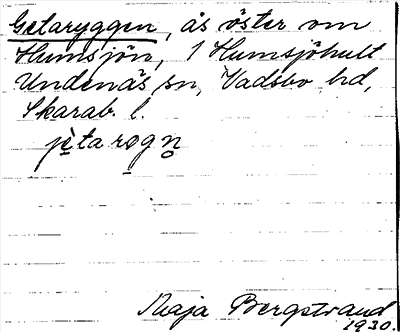 Getaryggen, ås öster om
Humsjön, 1 Humsjöhult
Undenäs sn, Vadsbo hd,
Skarab. l.
jètarog̣n̥
Maja Bergstrand
1930.